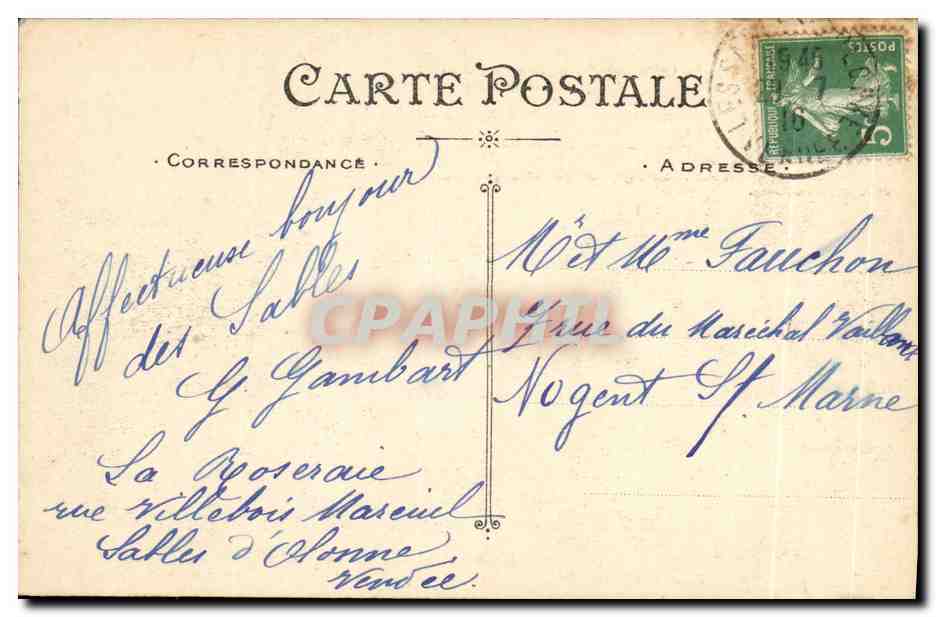 CARTE POSTALE
CORRESPONDANCE
ADRESSE
RÉPUBLIQUE FRANÇAISE
POSTES
5
9 45
7
10
Affectueuse bonjour
des Sables
G. Gambart
La Roseraie
rue Villebois Mareuil
Sables d'Olonne
Vendée.
Mr et Mme Fauchon
rue du Maréchal Vaillant
Nogent S/. Marne
CPAPHIL